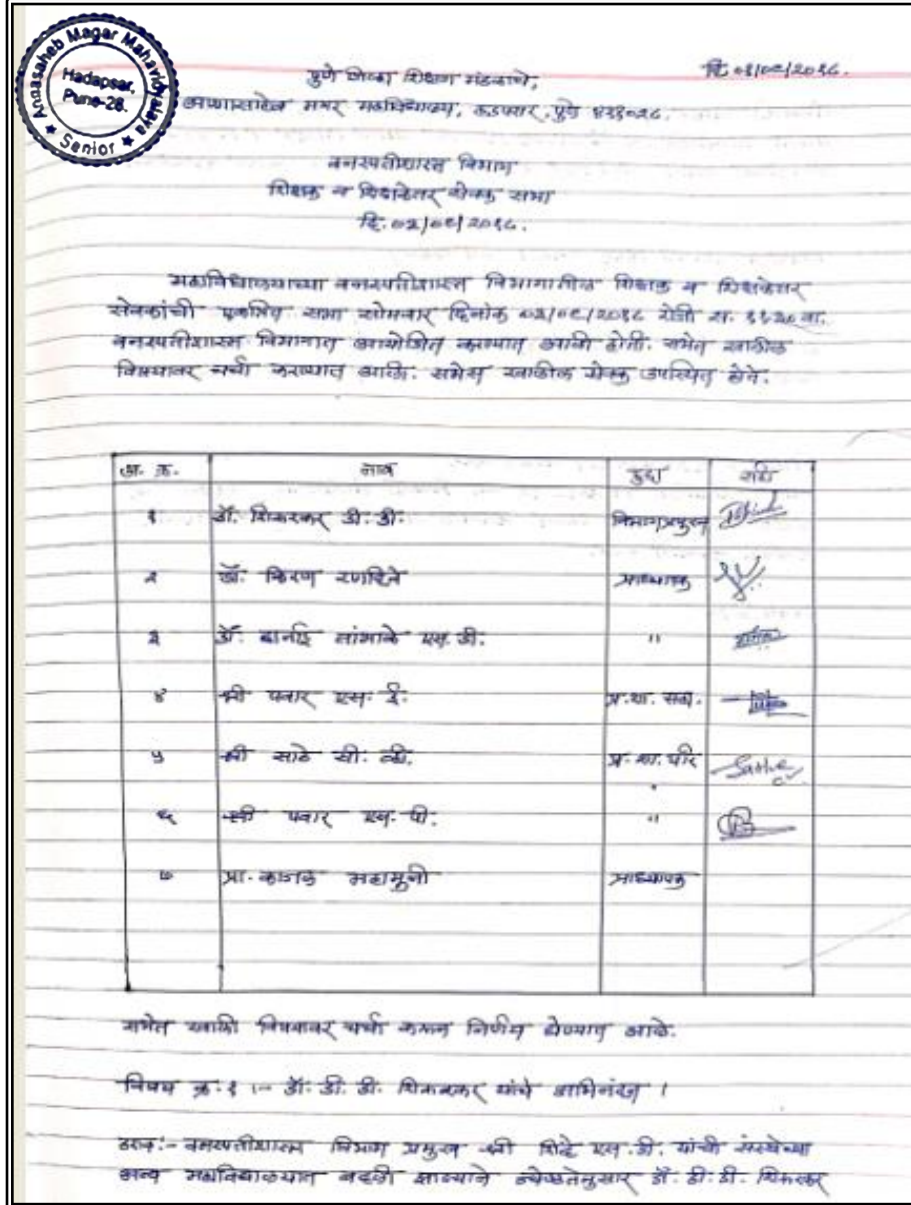 Annasaheb Magar Mahavidyalaya
Hadapsar,
Pune-28.
★ Senior ★
पुणे जिल्हा शिक्षण मंडळाचे,
अण्णासाहेब मगर महाविद्यालय, हडपसर, पुणे ४११०२८.
वनस्पतीशास्त्र विभाग
शिक्षक व शिक्षकेतर सेवक सभा
महाविद्यालयाच्या वनस्पतीशास्त्र विभागातील शिक्षक व शिक्षकेतर
सेवकांची एकत्रित सभा सोमवार दिनांक रोजी स. ११.२० वा.
वनस्पतीशास्त्र विभागात आयोजित करण्यात आली होती. सभेत खालील
विषयावर चर्चा करण्यात आली. सभेस खालील सेवक उपस्थित होते.
अ. क्र. नाव हुद्दा सही
१ डॉ. डी. डी. विभागप्रमुख
२ डॉ. किरण रणदिवे प्राध्यापक
३ डॉ. एस. डी. "
४ श्री पवार एस. ई. प्र. शा. सहा.
५ श्री साठे सी. व्ही. प्र. शा. Sathe
६ श्री पवार एस. पी. "
७ प्रा. काजल महामुनी प्राध्यापक
सभेत खाली विषयावर चर्चा करून निर्णय घेण्यात आले.
विषय क्र. १ :- डॉ. डी. डी. यांचे अभिनंदन ।
ठराव:- वनस्पतीशास्त्र विभाग प्रमुख श्री शिंदे एस. डी. यांची संस्थेच्या
अन्य महाविद्यालयात बदली झाल्याने ज्येष्ठतेनुसार डॉ. डी. डी.